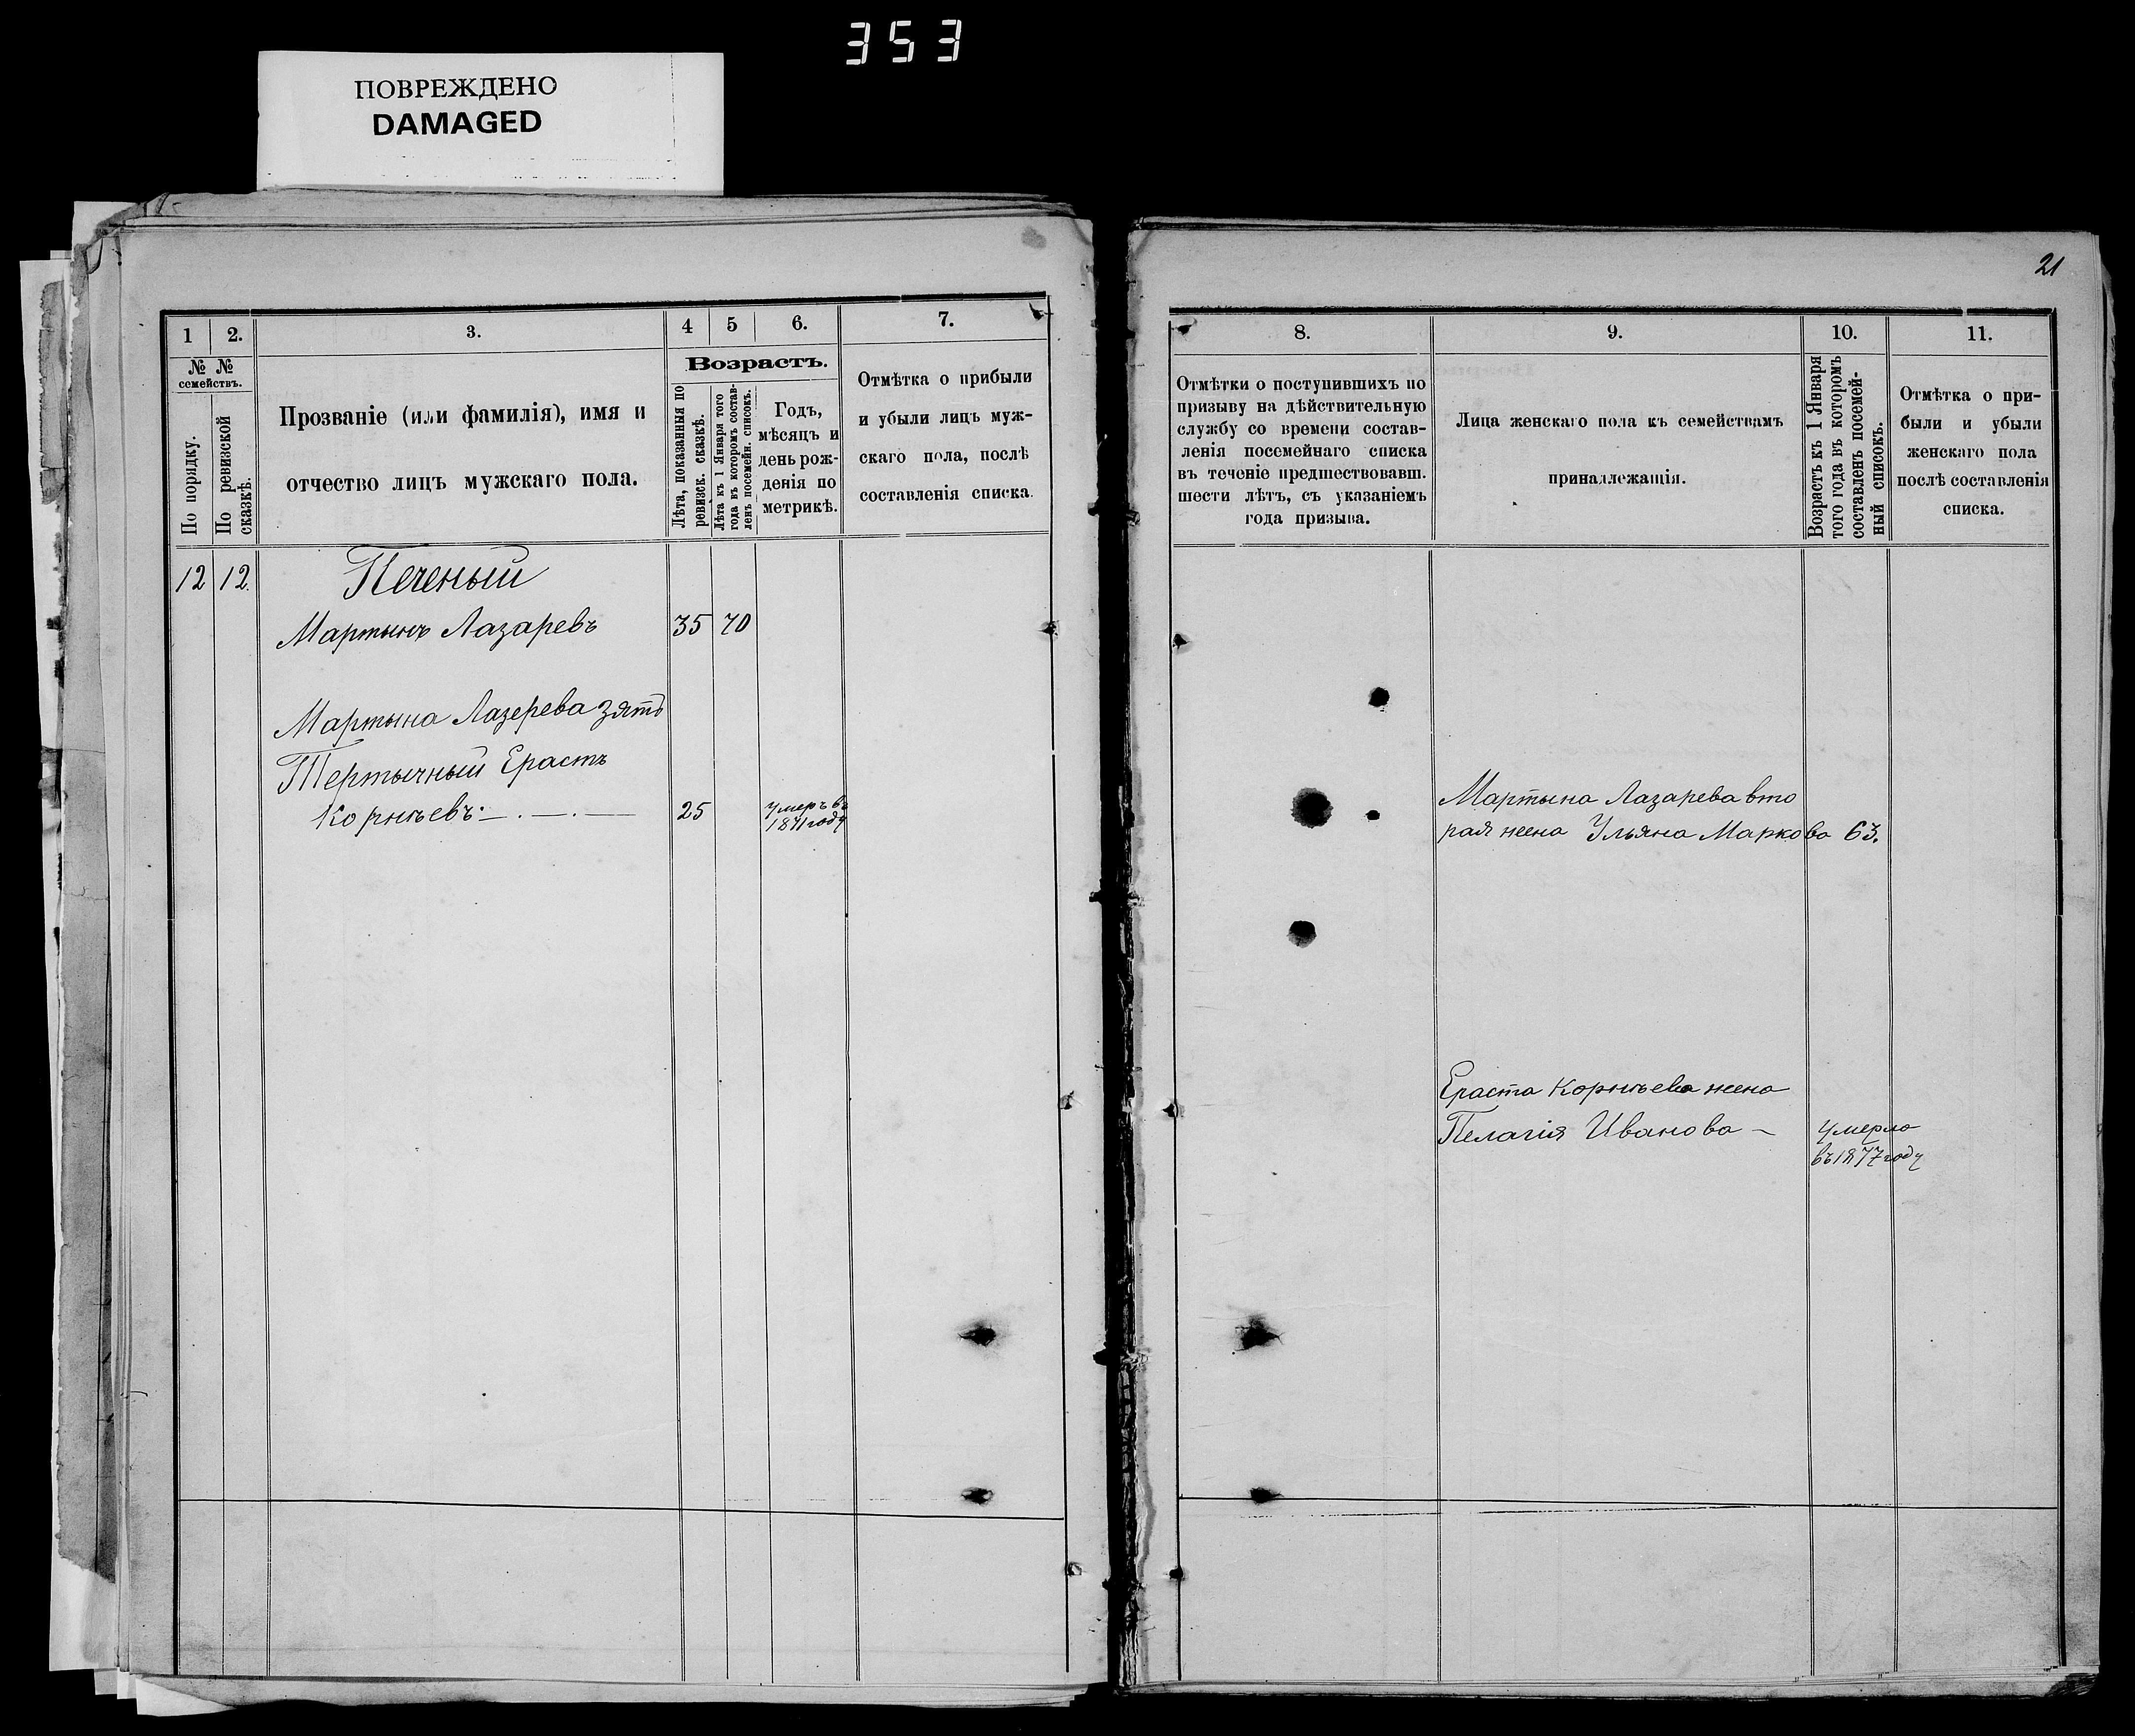 353
ПОВРЕЖДЕНО
DAMAGED
1
2.
3.
4
5
6.
7.
№ №
семействъ.
По порядку.
По ревизской
сказкѣ.
Прозваніе (или фамилія), имя и
отчество лицъ мужскаго пола.
Возрастъ.
Лѣта, показанныя по
ревизск. сказкѣ.
Лѣта къ 1 Января того
года въ которомъ состав-
ленъ посемейн. списокъ.
Годъ,
мѣсяцъ и
день рож-
денія по
метрикѣ.
Отмѣтка о прибыли
и убыли лицъ муж-
скаго пола, послѣ
составленія списка.
12 12. Печеный
Мартынъ Лазаревъ 35 70
Мартына Лазерева зять
Тертычный Ерастъ
Корнѣевъ 25 умеръ въ
1871 году
21
8.
9.
10.
11.
Отмѣтки о поступившихъ по
призыву на дѣйствительную
службу со времени состав-
ленія посемейнаго списка
въ теченіе предшествовавш.
шести лѣтъ, съ указаніемъ
года призыва.
Лица женскаго пола къ семействамъ
принадлежащія.
Возрастъ къ 1 Января
того года въ которомъ
составленъ посемей-
ный списокъ.
Отмѣтка о при-
были и убыли
женскаго пола
послѣ составленія
списка.
Мартына Лазарева вто
рая жена Ульяна Маркова 63.
Ераста Корнѣева жена
Пелагія Иванова – умерла
въ 1877 году